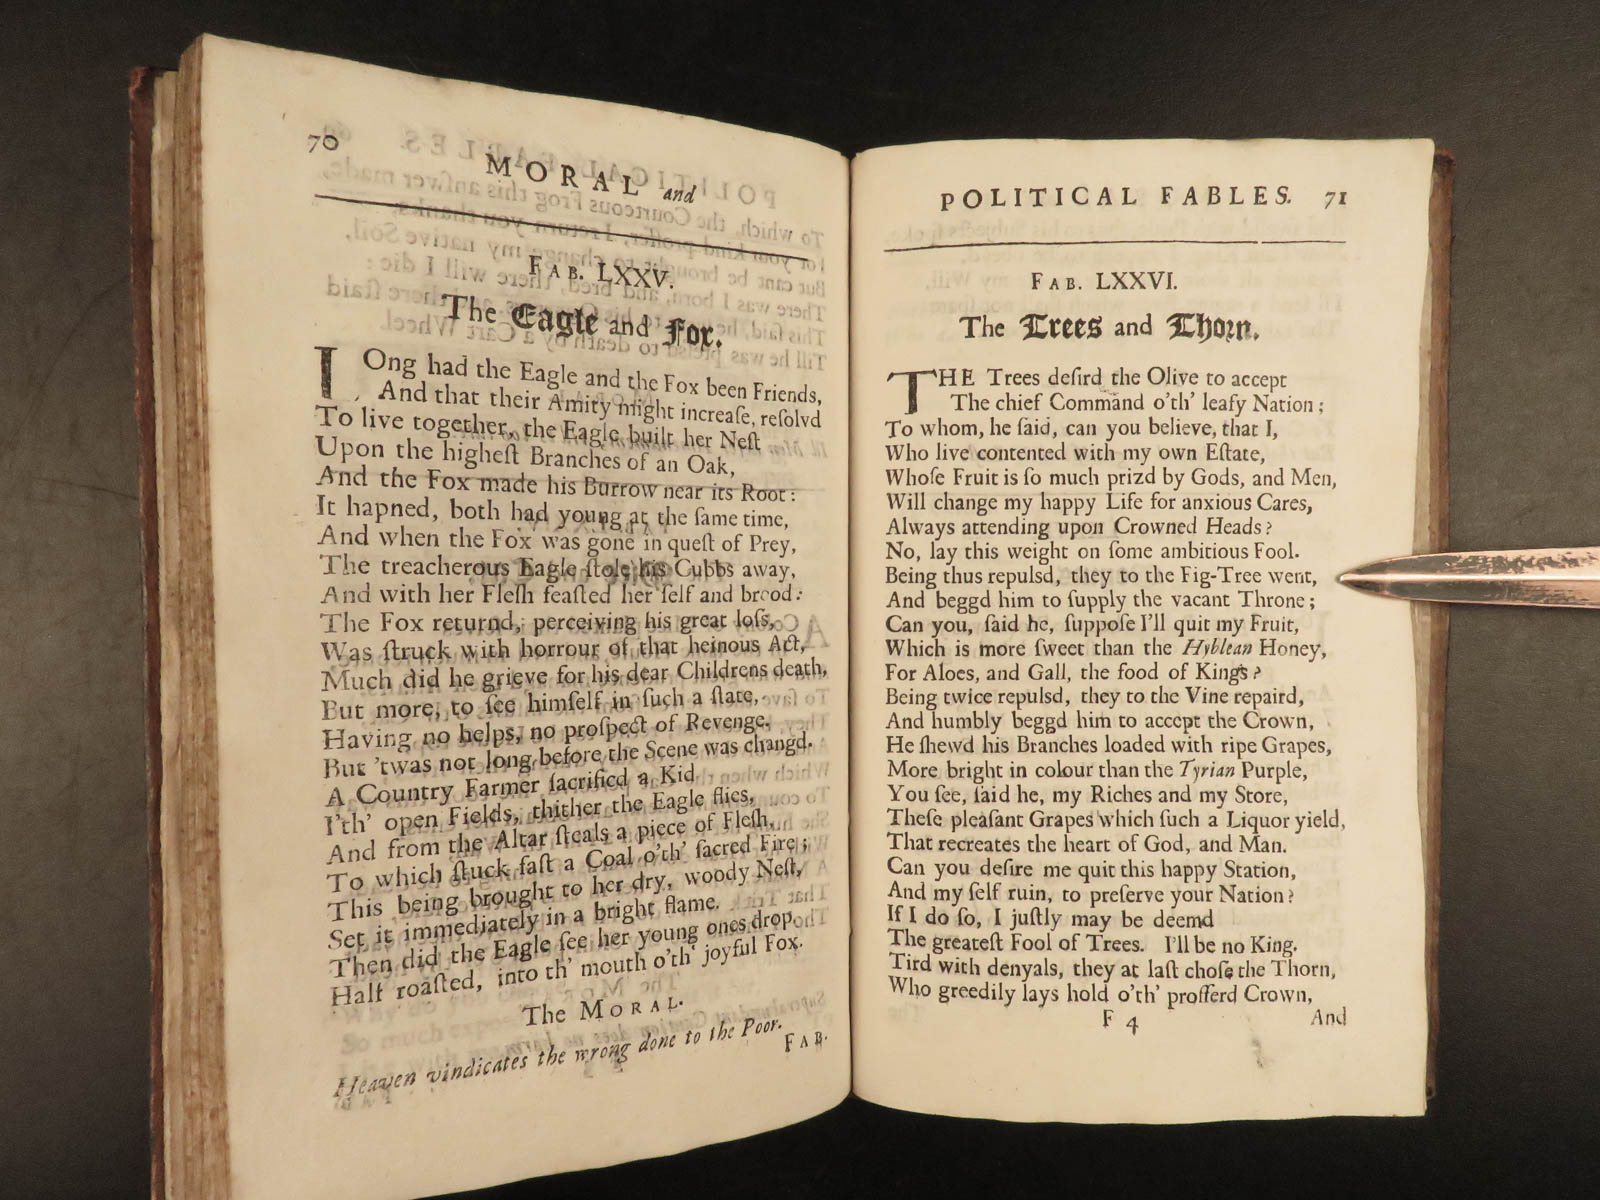 70
MORAL and
FAB. LXXV.
The Eagle and Fox.
LOng had the Eagle and the Fox been Friends,
And that their Amity might increaſe, reſolvd
To live together, the Eagle built her Neſt
Upon the higheſt Branches of an Oak,
And the Fox made his Burrow near its Root:
It hapned, both had young at the ſame time,
And when the Fox was gone in queſt of Prey,
The treacherous Eagle ſtole his Cubbs away,
And with her Fleſh feaſted her ſelf and brood:
The Fox returnd, perceiving his great loſs,
Was ſtruck with horrour of that heinous Act,
Much did he grieve for his dear Childrens death,
But more, to ſee himſelf in ſuch a ſtate,
Having no helps, no proſpect of Revenge.
But 'twas not long before the Scene was changd.
A Country Farmer ſacrificd a Kid
I'th' open Fields, thither the Eagle flies,
And from the Altar ſteals a piece of Fleſh,
To which ſtuck faſt a Coal o'th' ſacred Fire;
This being brought to her dry, woody Neſt,
Set it immediately in a bright flame.
Then did the Eagle ſee her young ones drop,
Half roaſted, into th' mouth o'th' joyful Fox.
The MORAL.
Heaven vindicates the wrong done to the Poor.
FAB.
POLITICAL FABLES. 71
FAB. LXXVI.
The Trees and Thorn.
THE Trees deſird the Olive to accept
The chief Command o'th' leafy Nation;
To whom, he ſaid, can you believe, that I,
Who live contented with my own Eſtate,
Whoſe Fruit is ſo much prizd by Gods, and Men,
Will change my happy Life for anxious Cares,
Always attending upon Crowned Heads?
No, lay this weight on ſome ambitious Fool.
Being thus repulsd, they to the Fig-Tree went,
And beggd him to ſupply the vacant Throne;
Can you, ſaid he, ſuppoſe I'll quit my Fruit,
Which is more ſweet than the Hyblean Honey,
For Aloes, and Gall, the food of Kings?
Being twice repulsd, they to the Vine repaird,
And humbly beggd him to accept the Crown,
He ſhewd his Branches loaded with ripe Grapes,
More bright in colour than the Tyrian Purple,
You ſee, ſaid he, my Riches and my Store,
Theſe pleaſant Grapes which ſuch a Liquor yield,
That recreates the heart of God, and Man.
Can you deſire me quit this happy Station,
And my ſelf ruin, to preſerve your Nation?
If I do ſo, I juſtly may be deemd
The greateſt Fool of Trees. I'll be no King.
Tird with denyals, they at laſt choſe the Thorn,
Who greedily lays hold o'th' profferd Crown,
F 4
And